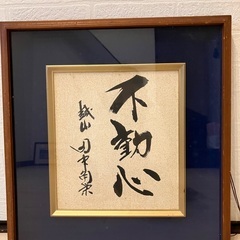 不動心
越山 田中角栄